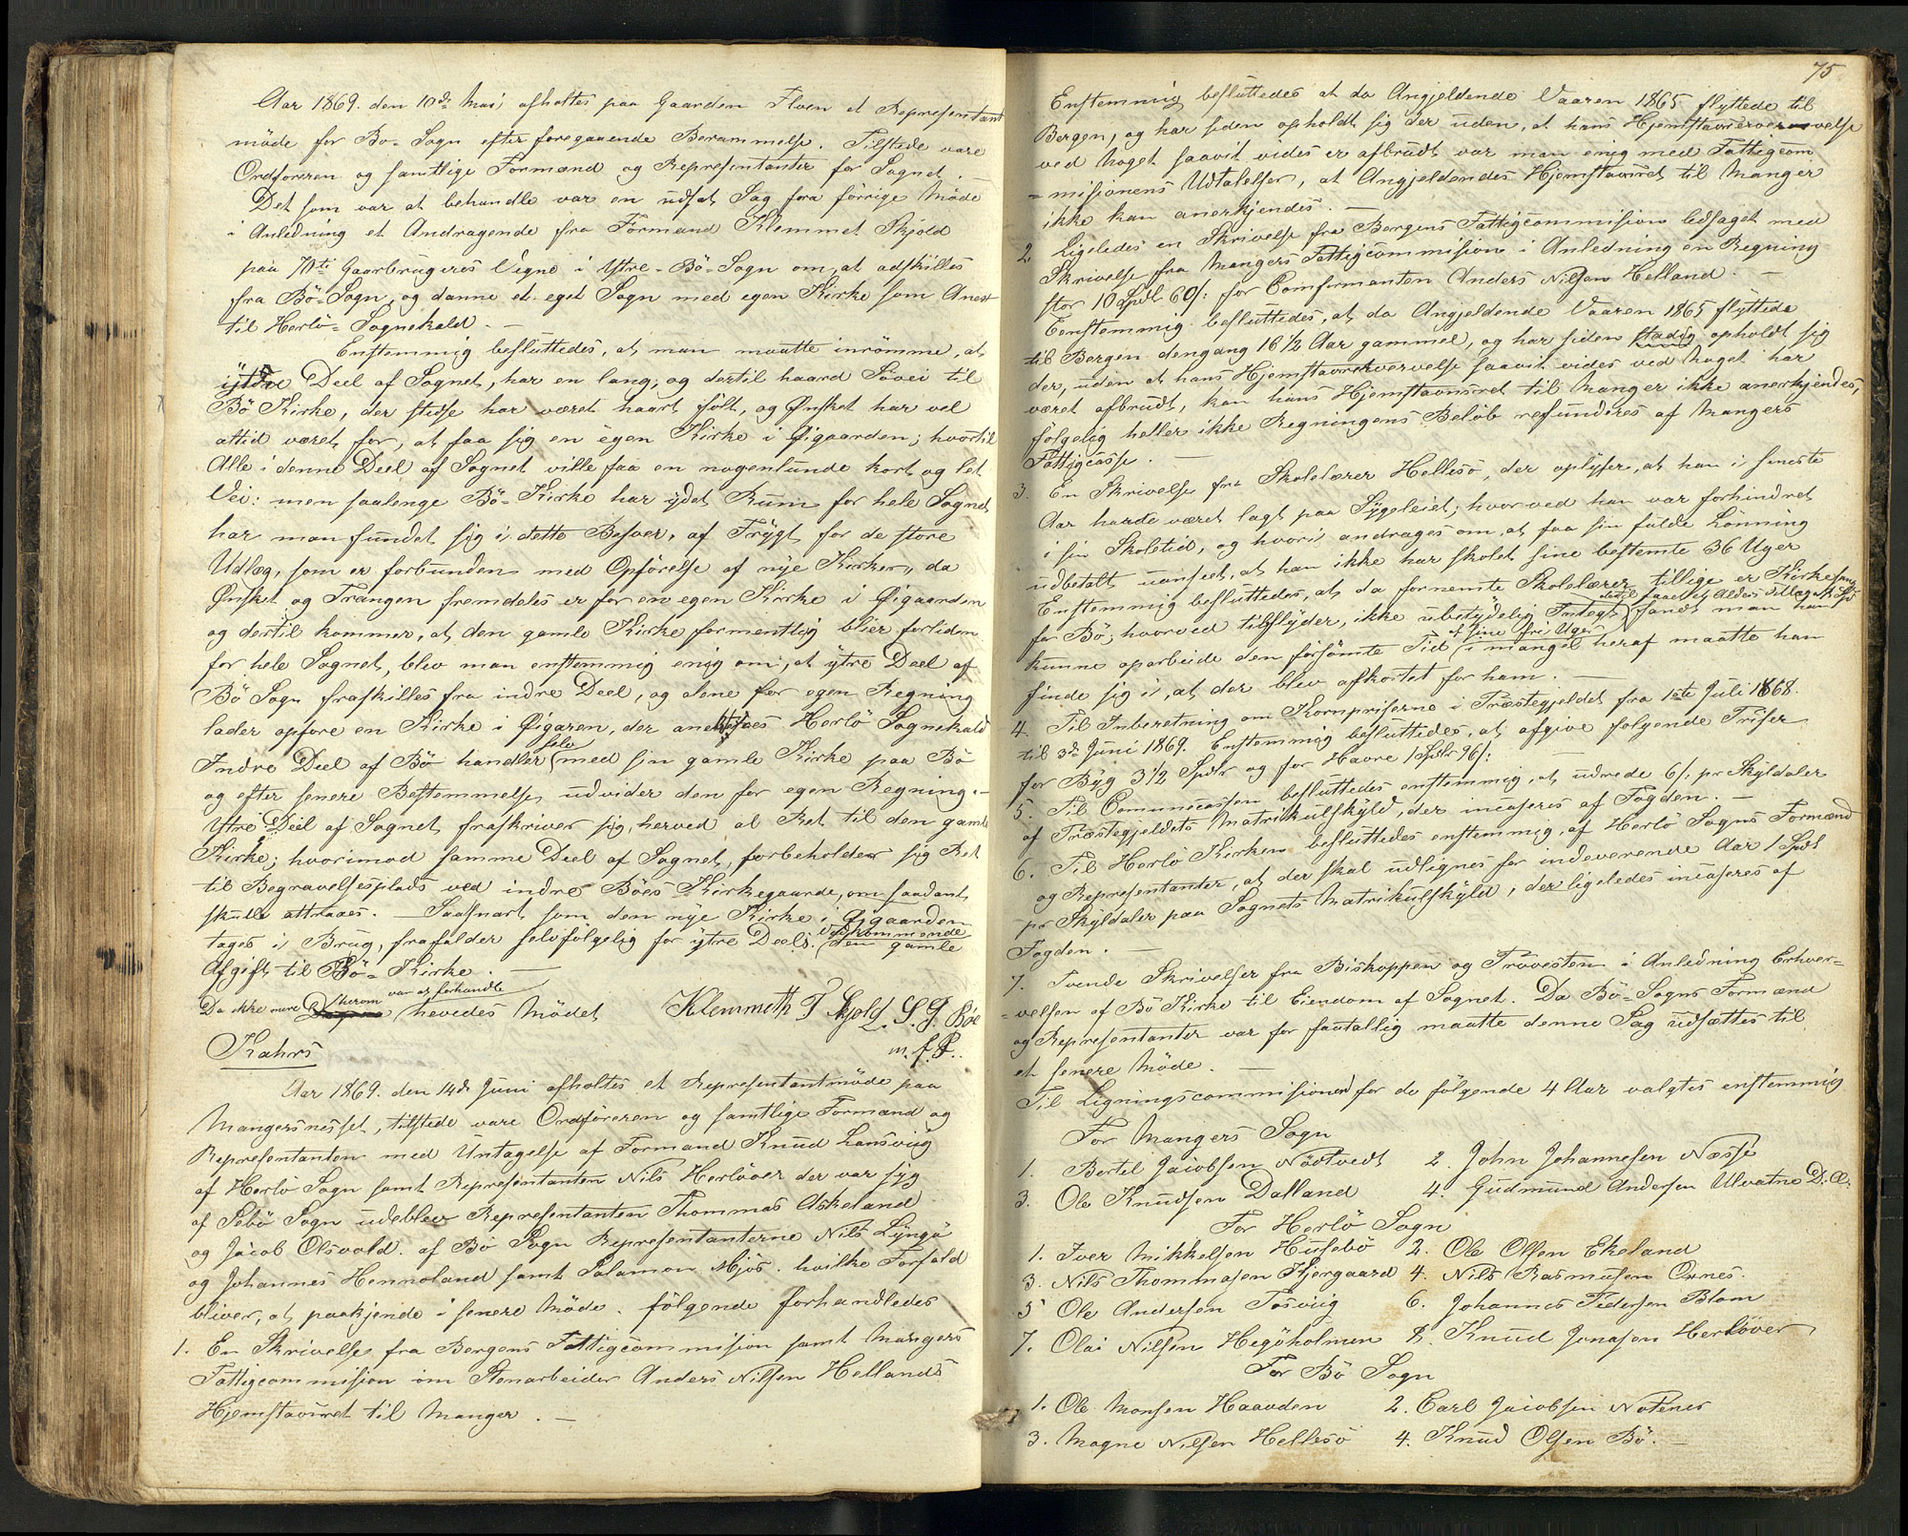 Aar 1869. den 10de Mai afholtes paa Gaarden Floen et Representant
möde for Bö-Sogn efter foregaaende Berammelse. Tilstede vare
Ordföreren og samtlige Formænd og Representanter for Sognet.
Det som var at behandle var en udsat Sag fra förrige Möde
i Anledning et Andragende fra Formand Klemmet Skjold
paa 70ti Gaarbrugeres Vegne i Ytre-Bö-Sogn om, at adskilles
fra Bö-Sogn, og danne et eget Sogn med egen Kirke som Anex
til Herlö-Sognekald. —
Enstemmig besluttedes, at man maatte inrömme, at
ijtre Deel af Sognet, har en lang, og dertil haard Sövei til
Bö Kirke, der stedse har været haart fölt, og Önsket har vel
altid været for, at faa sig en egen Kirke i Öigaarden; hvortil
Alle i denne Deel af Sognet ville faa en nogenlunde kort og let
Vei: men saalenge Bö-Kirke har ydet Rum for hele Sognet
har man fundet sig i dette Besver, af Frÿgt for de store
Udlæg, som er forbunden med Opförelse af nye Kirker, da
Önsket og Trangen fremdeles er for en egen Kirke i Öigaarden
og dertil kommer, at den gamle Kirke formentlig blier forliden
for hele Sognet, blev man enstemmig enig om, at ÿtre Deel af
Bö Sogn fraskilles fra indre Deel, og alene for egen Regning
lader opföre en Kirke i Öigaren, der anekteres Herlö Sognekald
Indre Deel af Bö handler selv med sin gamle Kirke paa Bö
og efter senere Bestemmelse, udvider den for egen Regning. —
Ytre Deel af Sognet fraskriver sig herved al Ret til den gamle
Kirke; hvorimod samme Deel af Sognet, forbeholder sig Ret
til Begravelsesplads ved indre Böes Kirkegaarde, om saadant
skulde attraaes. — Saasnart som den nye Kirke i Öigaarden
tages i Brug, frafalder selvfölgelig for ÿtre Deels Vedkommende den gamle
Afgift til Bö-Kirke. —
Da ikke mere herom var at forhandle hevedes Mödet Klemmeth T Skjold L. G. Böe
m. f. P.
Kahrs
Aar 1869. den 14de Juni afholtes et Representantmöde paa
Mangersnesset, tilstede vare Ordföreren og samtlige Formænd og
Representanter med Untagelse af Formand Knud Lansviig
af Herlö Sogn samt Representanten Nils Herlöver der var syg
af Sebö Sogn udeblev Representanten Thommas Askeland
og Jacob Olsvold. af Bö Sogn Representanterne Nils Lÿngö
og Johannes Hennoland samt Salamon Mjös. hvilke Forfald
bliver, at paakjende i senere Möde. fölgende forhandledes
1. En Skrivelse fra Bergens Fattigcommission samt Mangers
Fattigcommission om Stenarbeider Anders Nilsen Hellands
Hjemstavnret til Manger. —
75.
Enstemmig besluttedes at da Angjeldende Vaaren 1865 flyttede til
Bergen, og har siden opholdt sig der uden, at hans Hjemstavnserververvelse
ved Noget saavit vides er afbrudt var man enig med Fattigcom
-missionens Udtalelser, at Angjeldendes Hjemstavnret til Manger
ikke kan anerkjendes. —
2 Ligeledes en Skrivelse fra Bergens Fattigcommission ledsaget med
Skrivelse fra Mangers Fattigcommission i Anledning en Regning
stor 10 Spdl 60 s: for Comfirmanten Anders Nilsen Helland. —
Eenstemmig besluttedes, at da Angjeldende Vaaren 1865 flyttede
til Bergen dengang 16 1/2 Aar gammel, og har siden stadig opholdt sig
der, uden at hans Hjemstavnserververvelse saavit vides ved Noget har
været afbrudt, kan hans Hjemstavnsret til Manger ikke anerkjendes,
fölgelig heller ikke Regningens Belöb refunderes af Mangers
Fattigcasse. —
3. En Skrivelse fra Skolelærer Hellesö, der oplyser, at han i seneste
Aar havde været lagt paa Sygeleiet, hvorved han var forhindret
i sin Skoletid, og hvori andrages om, at faa sin fulde Lönning
udbetalt uanseet, at han ikke har skolet sine bestemte 36 Uger
Enstemmig besluttedes, at, da fornemte Skolelærer tillige er Kirkesanger
for Bö, hvorved tilflÿder, ikke ubetÿdelig Integt, sandt man han
kunne oparbeide den forsömte Tid af sine fri Uger i mangel heraf maatte han
finde sig i, at der blev afkortet for ham. —
4. Til Inberetning om Kornpriserne i Præstegjeldet fra 1ste Juli 1868.
til 3de Juni 1869. Enstemmig besluttedes, at afgive folgende Priser
for Bÿg 3 1/2 Spdlr og for Havre 1 Spdlr 96 s:
5. Til Communecassen besluttedes enstemmig, at udrede 6 s. pr Skÿldaler
af Præstegjeldets Matrikulskÿld, der incaseres af Fogden. —
6. Til Herlö Kirken besluttedes enstemmig, af Herlö Sogns Formænd
og Representanter, at der skal udlignes for indeverende Aar 1 Spdl
pr Skÿldaler paa Sognets Matrikulskÿld, der ligeledes incaseres af
Fogden. —
7. Tvende Skrivelser fra Biskoppen og Provesten i Anledning Erhver-
-velsen af Bö Kirke til Eiendom af Sognet. Da Bö-Sogns Formænd
og Representanter var for faatallig maatte denne Sag udsættes til
et senere Möde. —
Til Ligningscommisioner for de fölgende 4 Aar valgtes enstemmig
For Mangers Sogn
1. Bertel Jacobsen Nödtvedt 2. John Johannesen Næsse
3. Ole Knudsen Dalland 4. Gudmund Andersen Ulvatne D. Æ.
For Herlö Sogn
1. Iver Mikkelsen Husebö 2. Ole Olsen Ekeland
3. Nils Thommasen Kjergaard 4. Nils Rasmusen Örnes.
5 Ole Andersen Tosviig 6. Johannes Pedersen Blom
7. Olai Nilsen Hegöholmen 8. Knud Jonasen Herlöver,
For Bö Sogn
1. Ole Monsen Haavden 2. Carl Jacobsen Nötenes
3. Magne Nilsen Hellesö 4. Knud Olsen Bö. —